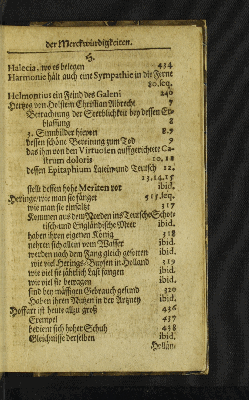 der Merckwürdigkeiten.
H.
Halecia, wo es belegen 434
Harmonie hält auch eine Sympathie in die Ferne
80. seq.
Helmontius ein Feind des Galeni 240
Hertzog von Holstein Christian Albrecht 7
Betrachtung der Sterblichkeit bey dessen Er-
blassung 8
3. Sinnbilder hievon 8.9
dessen schöne Bereitung zum Tod 9
das ihn von den Virtuosen auffgerichtete Ca-
strum doloris 10.12
dessen Epitaphium Latein und Teutsch 12.
13.14.15
stellt dessen hohe Meriten vor ibid.
Heringe, wie man sie fänget 315. seq.
wie man sie einsaltzt 317
Kommen aus dem Norden ins Teutsche Schot-
tisch- und Engländische Meer ibid.
haben ihren eigenen König 318
nehren sich allein vom Wasser ibid.
werden nach dem Fang gleich gestorben ibid.
wie viel Herings-Buysen in Holland 319
wie viel sie jährlich Last fangen ibid.
wie viel sie betragen ibid.
sind bey mässigen Gebrauch gesund 320
Haben ihren Nutzen in der Artzney ibid.
Hoffart ist heute allzu groß 436
Exempel 437
bedient sich hoher Schuh 438
Gleichnisse derselben ibid.
Hollän-